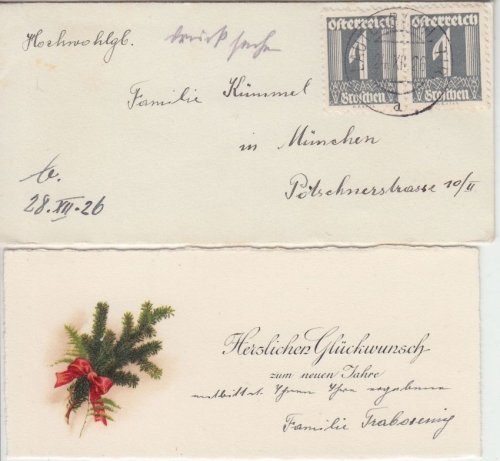 Hochwohlgb.
drucksache
Österreich Österreich
1 1
Groschen Groschen
a
Familie Kümmel
in München
Pötschnerstrasse 10/II
28.XII.26
Herzlichen Glückwunsch
zum neuen Jahre
entbittet Ihnen Ihre ergebene
Familie Trabosenig